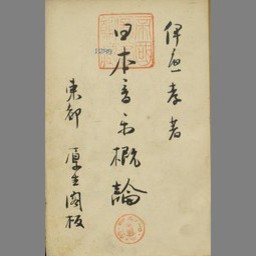 伊庭孝著
日本音楽概論
東都 厚生閣版